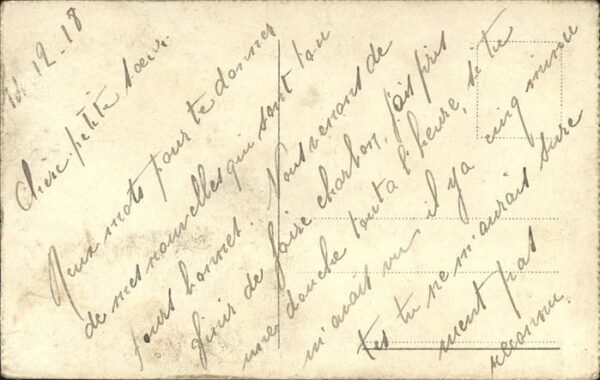 16. 12-18
Chère petite sœur.
Deux mots pour te donner
de mes nouvelles qui sont tou
jours bonnes. Nous venons de
finir de faire charbon, j'ais pris
une douche tout a l'heure, si tu
m'avais vu il y a cinq minu
tes tu ne m'aurais sure
ment pas
reconnu.